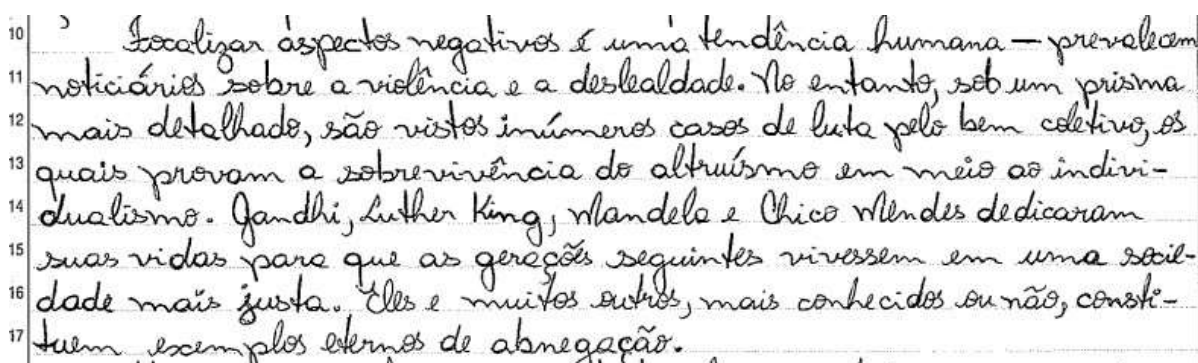 10 Focalizar aspectos negativos é uma tendência humana — prevalecem
11 noticiários sobre a violência e a deslealdade. No entanto, sob um prisma
12 mais detalhado, são vistos inúmeros casos de luta pelo bem coletivo, os
13 quais provam a sobrevivência do altruísmo em meio ao indivi-
14 dualismo. Gandhi, Luther King, Mandela e Chico Mendes dedicaram
15 suas vidas para que as gerações seguintes vivessem em uma socie-
16 dade mais justa. Eles e muitos outros, mais conhecidos ou não, consti-
17 tuem exemplos eternos de abnegação.